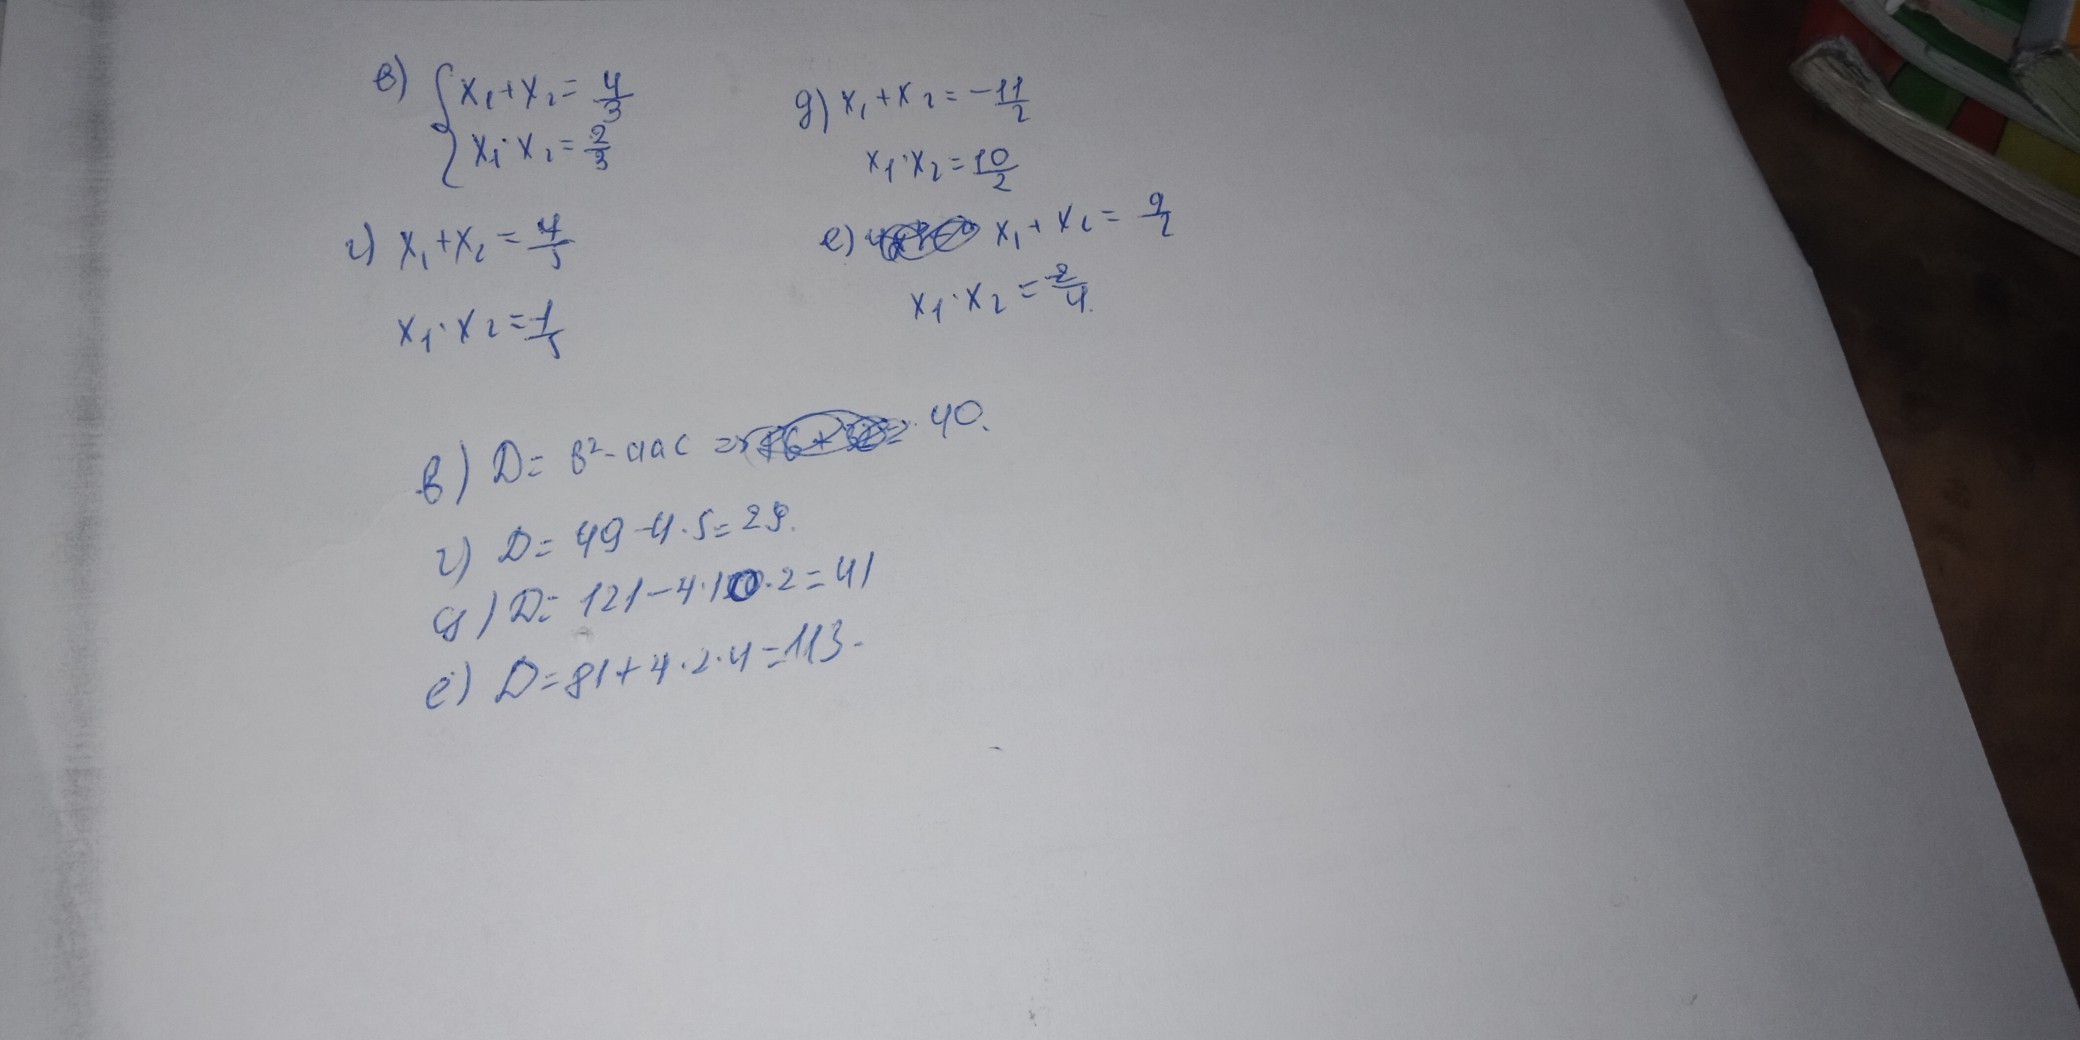 в) { x₁+x₂= 4/3
x₁·x₂= 2/3
г) x₁+x₂ = 4/5
x₁·x₂= 1/5
д) x₁+x₂=-11/2
x₁·x₂=10/2
е) x₁+x₂= 9/2
x₁·x₂ = 2/4.
в) D= в²-4ac = 40.
г) D= 49-4·5=29.
д) D= 121-4·10·2=41
е) D=81+4·2·4=113.